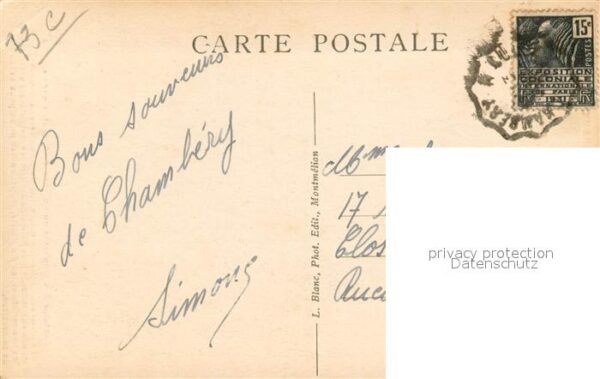 73 C
CARTE POSTALE
15c
POSTES
EXPOSITION
COLONIALE
INTERNATIONALE
PARIS
1931
Bons souvenirs
de Chambéry
Simone
L. Blanc, Phot. Edit., Montmélian
Mme
17
Clos
privacy protection
Datenschutz